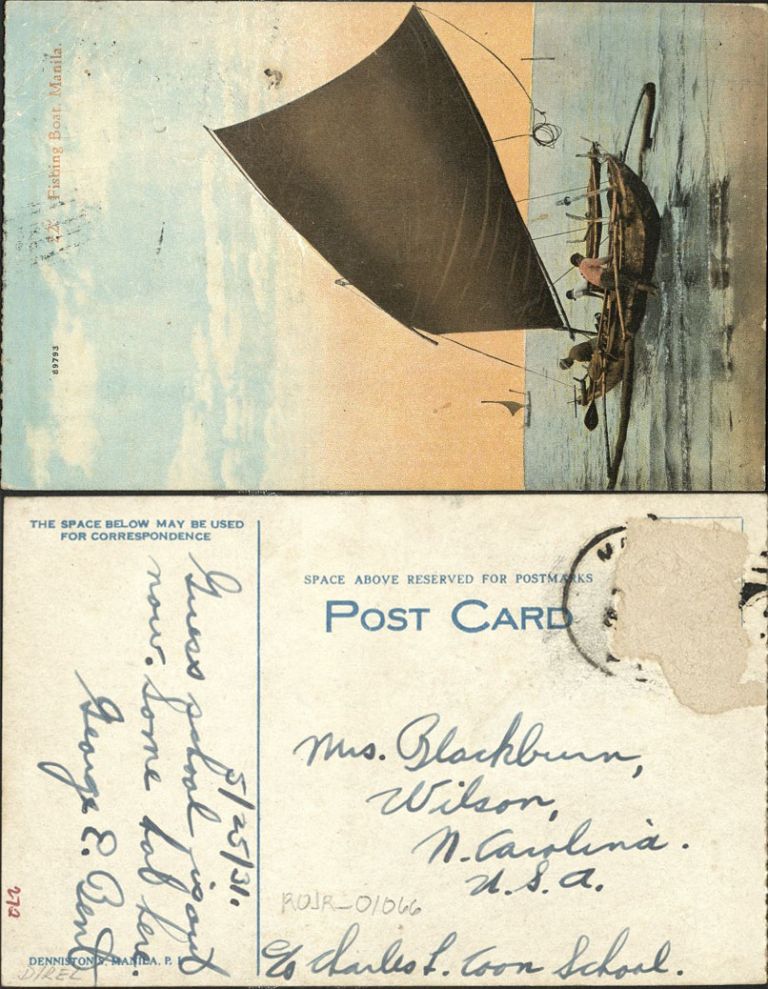 22 Fishing Boat, Manila.
89793
THE SPACE BELOW MAY BE USED
FOR CORRESPONDENCE
5/25/31.
Guess school is out
now. Some hot here.
George E. Bent
DENNISTON'S, MANILA, P. I.
272
SPACE ABOVE RESERVED FOR POSTMARKS
POST CARD
Mrs. Blackburn,
Wilson,
N. Carolina.
U.S.A.
ROJR-01066
c/o Charles L. Coon School.